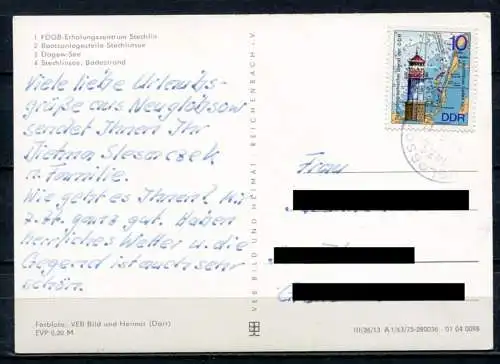 1 FDGB-Erholungszentrum Stechlin
2 Bootsanlegestelle Stechlinsee
3 Dagow-See
4 Stechlinsee, Badestrand
Viele liebe Urlaubs-
grüße aus Neuglobsow
sendet Ihnen Ihr
Dietmar Slesaczek
u. Familie.
Wie geht es Ihnen? Mir
z. Zt. ganz gut. Haben
herrliches Wetter u. die
Gegend ist auch sehr
schön.
Farbfoto: VEB Bild und Heimat (Darr)
EVP 0,20 M
VEB BILD UND HEIMAT REICHENBACH i. V.
10
DDR
Frau
III/26/13 A 1/63/75-280036 01 04 0098